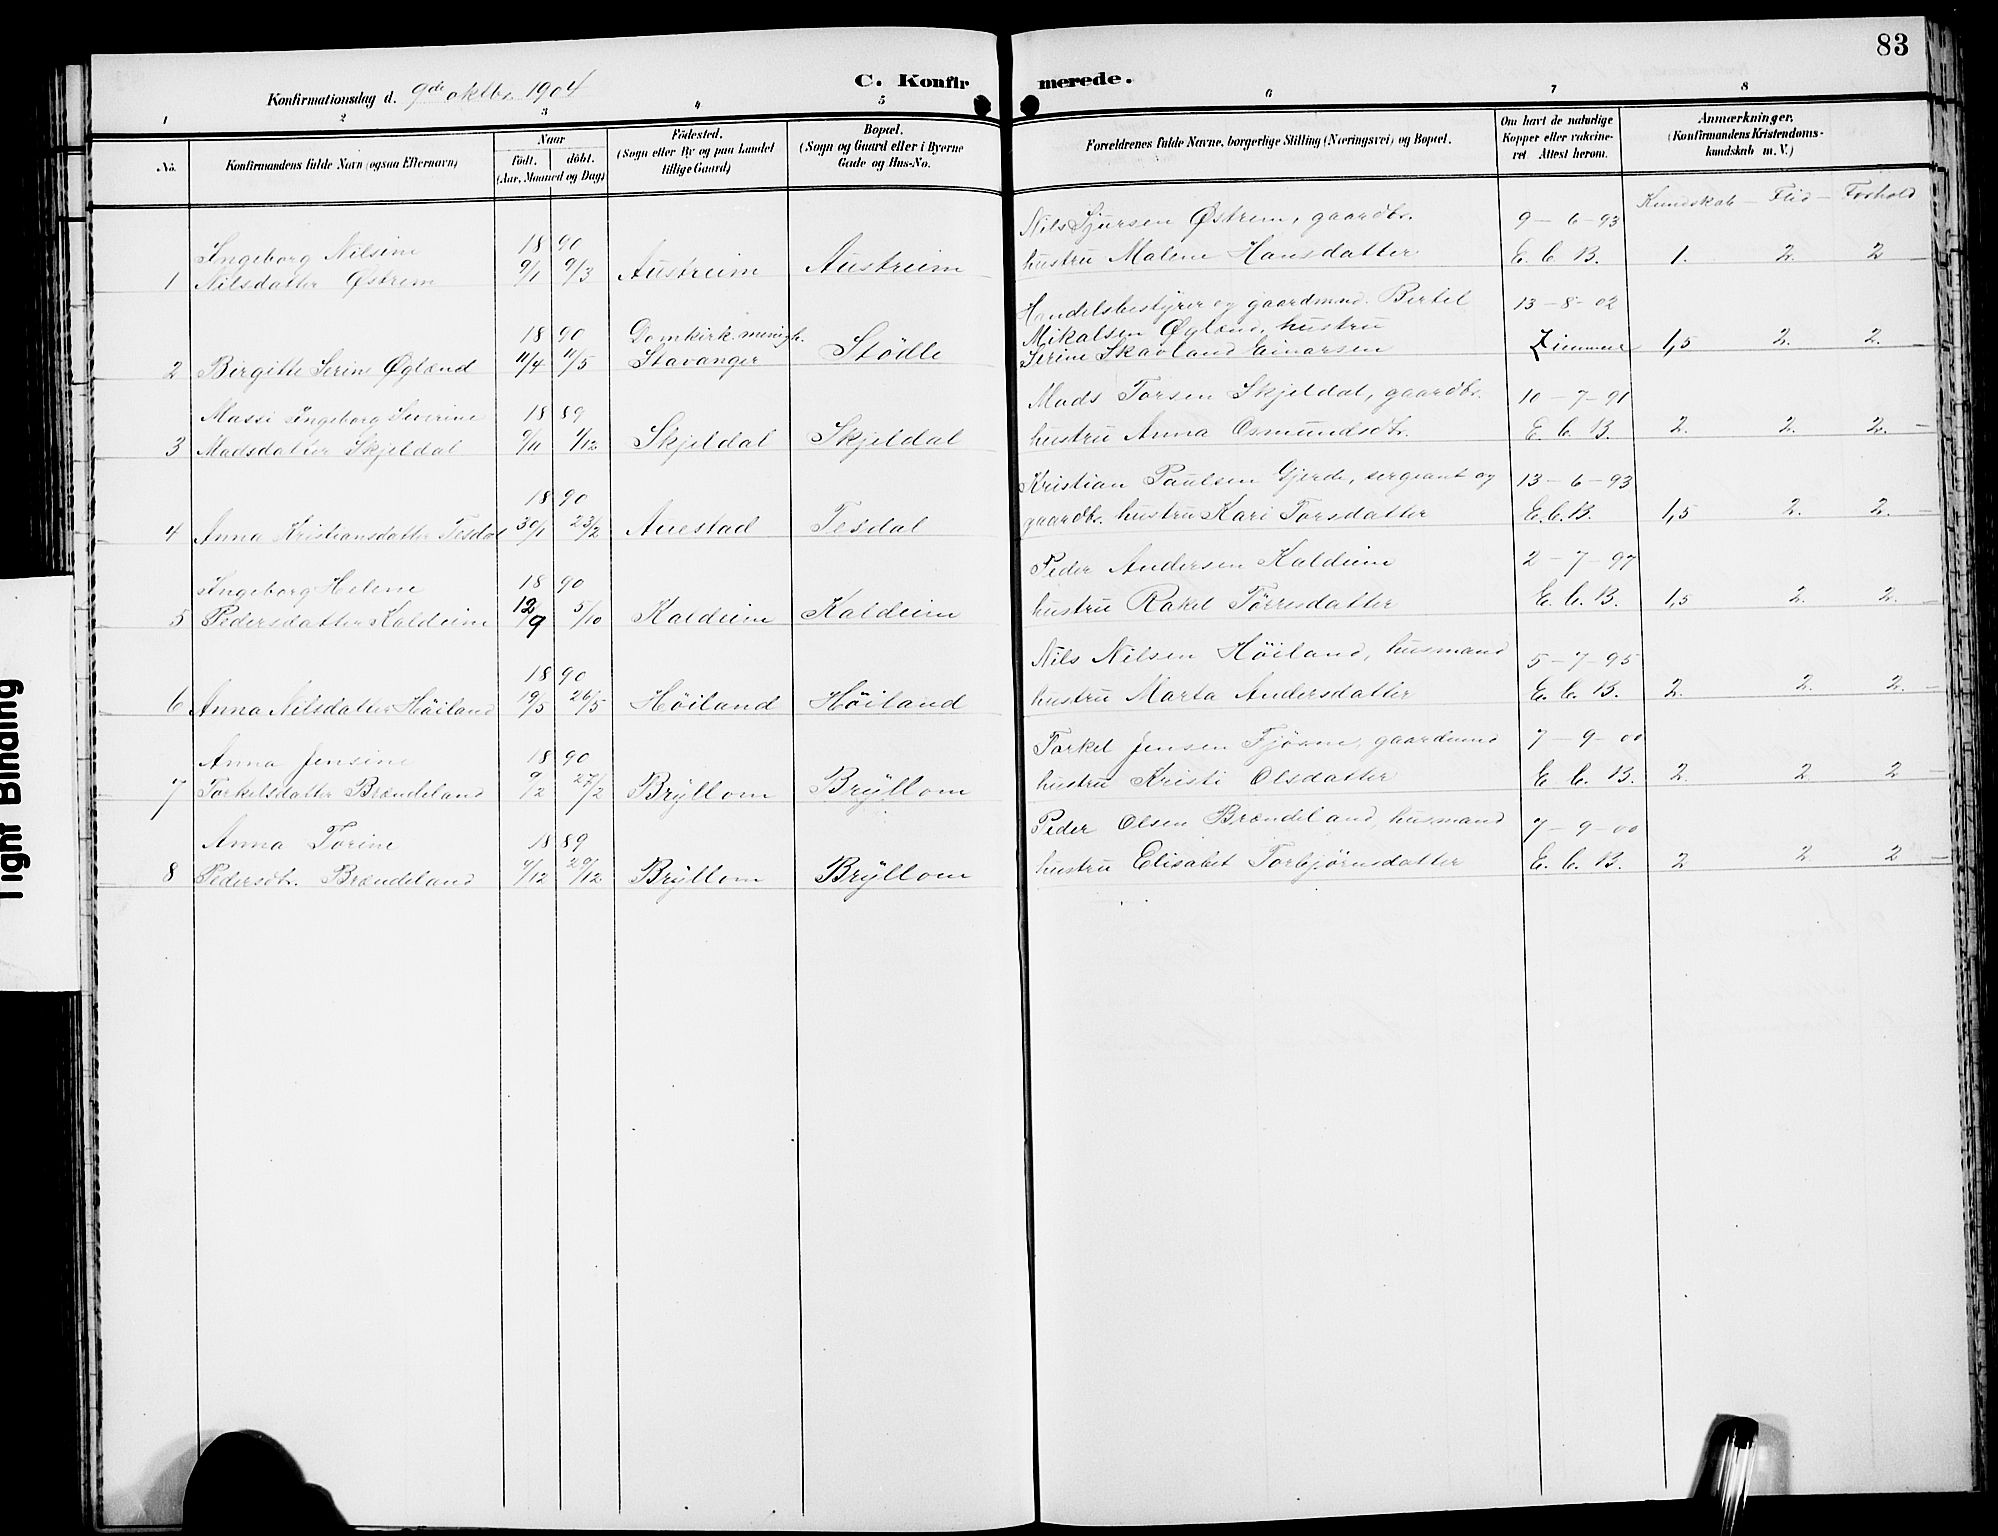 83
C. Konfirmerede.
Konfirmationsdag d. 9de oktbr. 1904
1 2 3 4 5 6 7 8
No.
Konfirmandens fulde Navn (ogsaa Efternavn)
Naar
födt. döbt.
(Aar, Maaned og Dag)
Födested.
(Sogn eller By og paa Landet
tillige Gaard)
Bopæl.
(Sogn og Gaard eller i Byerne
Gade og Hus-No.
Forældrenes fulde Navne, borgerlige Stilling (Næringsvei) og Bopæl.
Om havt de naturlige
Kopper eller vakcine-
ret Attest herom.
Anmærkninger.
(Konfirmandens Kristendoms-
kundskab m. V.)
Kundskab - Flid - Forhold
Ingeborg Nilsine 18 90 Nils Sjursen Østrem, gaardbr. 9-6-93
1 Nilsdatter Østrem 9/1 9/3 Austreim Austreim hustru Malene Hansdatter E. C. B. 1. 2. 2
Handelsbestyrer og gaardmnd. Bertel 13-8-02
18 90 Domkirk. menigh. Mikalsen Øgland, hustru
2 Birgitte Serine Øgland 11/4 11/5 Stavanger Stødle Serine Skavland Einarsen Zimmer 1,5 2. 2.
Massi Ingeborg Severine 18 89 Mads Torsen Skjeldal, gaardbr. 10-7-91
3 Madsdatter Skjeldal 9/11 1/12 Skjeldal Skjeldal hustru Anna Osmundsdtr. E. C. B. 2. 2. 2.
18 90 Kristian Paulsen Gjerde, sergeant og 13-6-93
4 Anna Kristiansdatter Tesdal 30/1 23/2 Auestad Tesdal gaardbr. hustru Kari Torsdatter E. C. B. 1,5 2. 2.
Ingeborg Helene 18 90 Peder Andersen Kaldeim 2-7-97
5 Pedersdatter Kaldeim 12/9 5/10 Kaldeim Kaldeim hustru Rakel Tørresdatter E. C. B. 1,5 2. 2.
18 90 Nils Nilsen Höiland, husmand 5-7-95
6 Anna Nilsdatter Höiland 19/5 26/5 Höiland Höiland hustru Marta Andersdatter E. C. B. 2. 2. 2.
Anna Jensine 18 90 Torkel Jensen Fjøsne, gaardmnd 7-9-00
7 Torkelsdatter Brændeland 9/2 27/2 Brÿllom Brÿllom hustru Kristi Olsdatter E. C. B. 2. 2 2
Anna Torine 18 89 Peder Olsen Brændeland, husmand 7-9-00
8 Pedersdtr. Brændeland 9/12 29/12 Brÿllom Brÿllom hustru Elisabet Torbjørnsdatter E. C. B. 2 2 2
Tight Binding